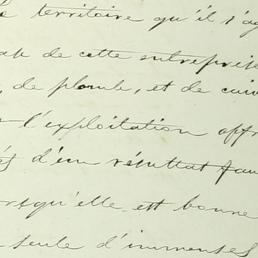 territoire qu'il s'ag
de cette entreprise
, de plomb, et de cuiv
l'exploitation offr
d'un résultat fau
orsqu'elle est bonne
seule d'immenses